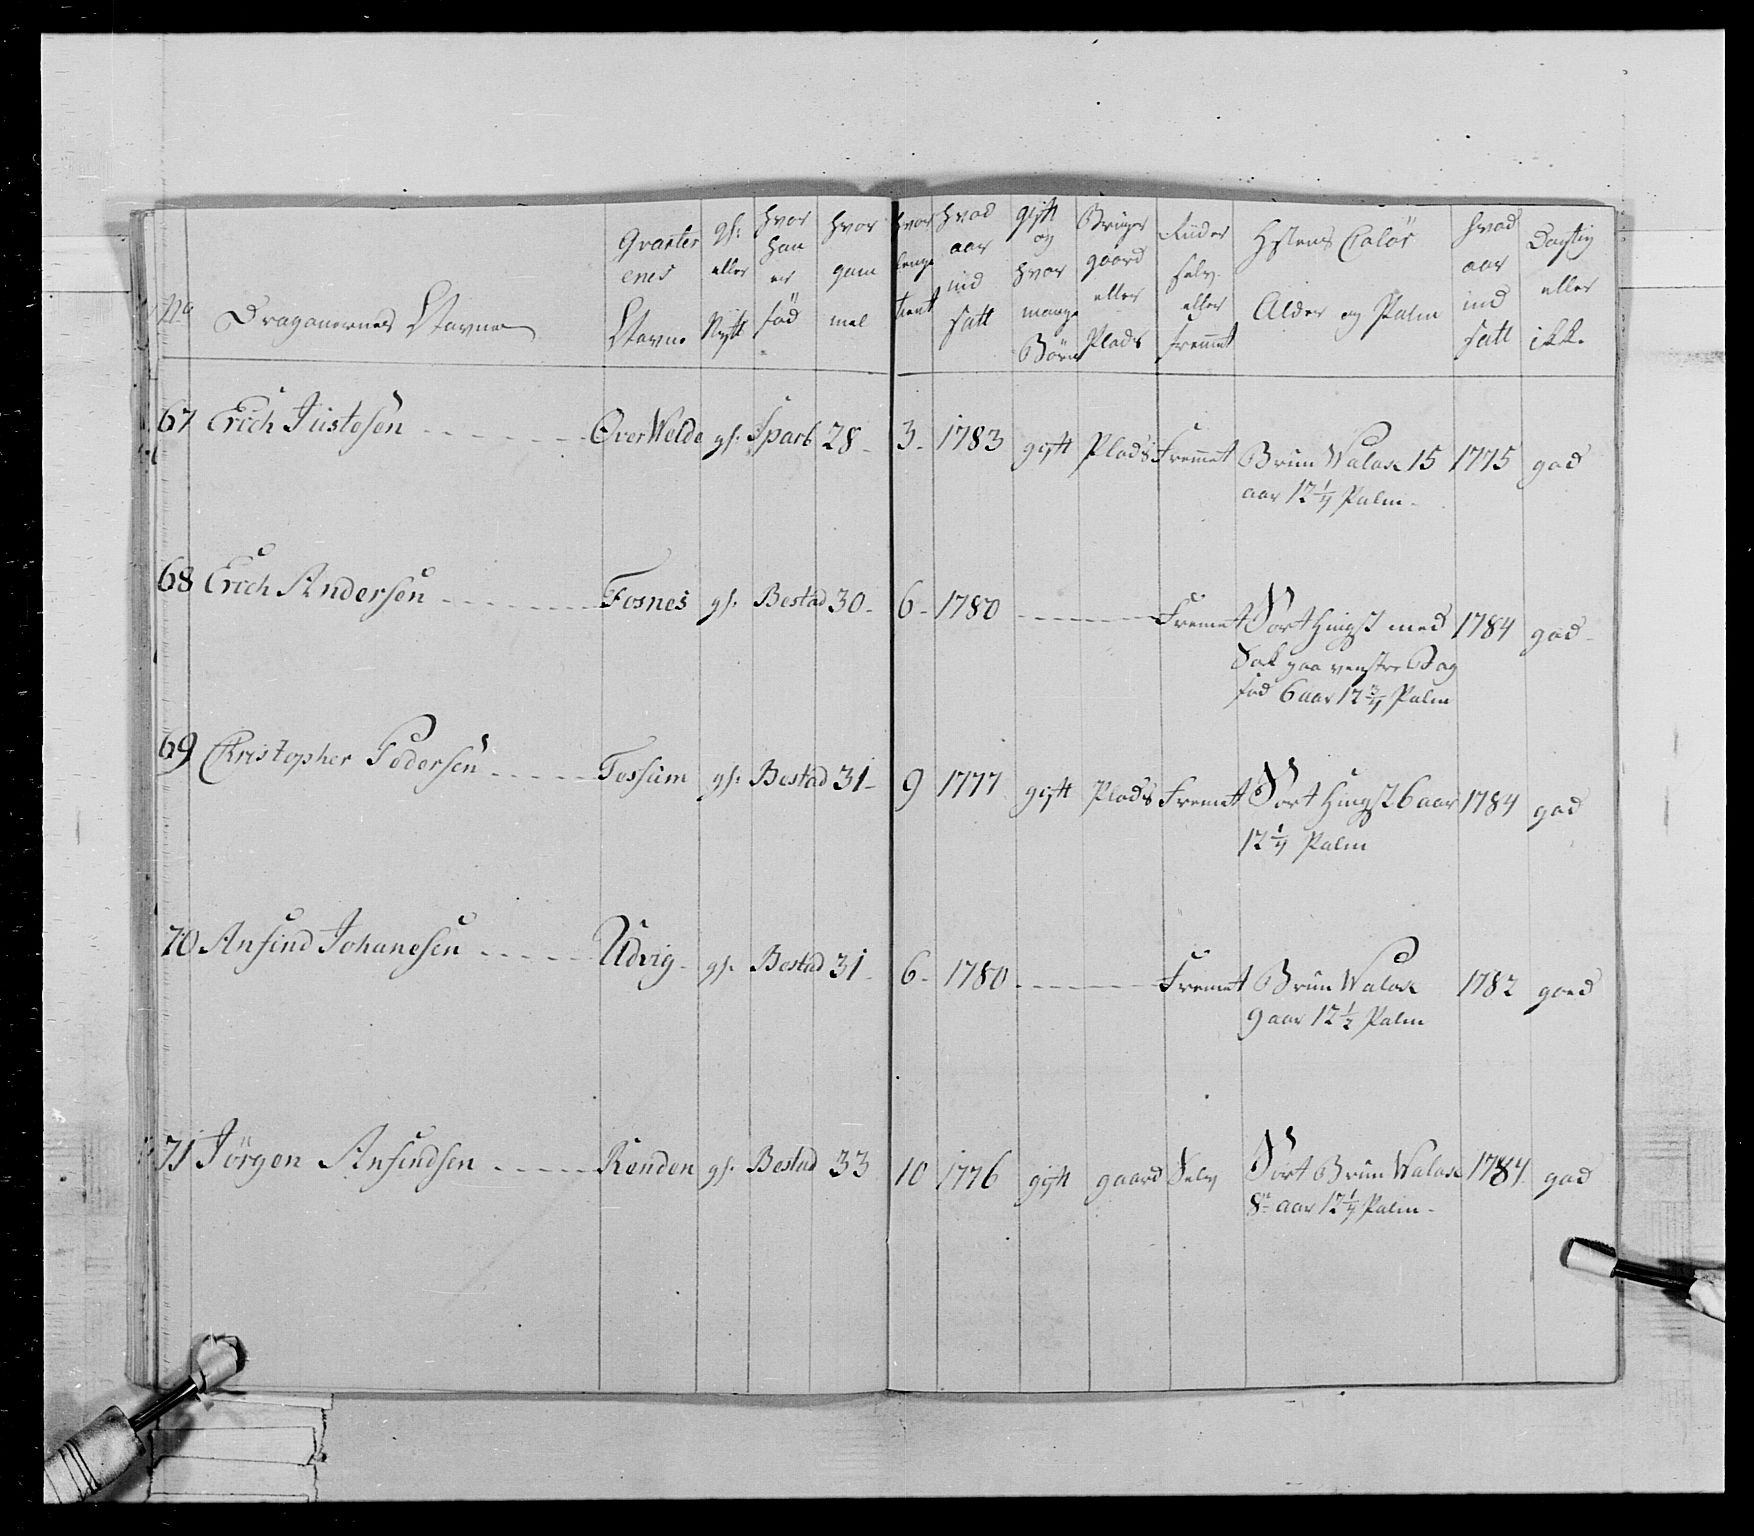 No Dragonernes Navne | Qvarterenes Navne | gl: eller Nytt | hvor han er fød | hvor gammel | hvor lenge tient | hvad aar ind satt | gift og hvor mange Børn | Bruger gaard eller Plads | Riider selv eller fremmet | Hestens Calør Alder og Palm | hvad aar ind satt | Dygtig eller ikk.
67 Erich Justesen | Over Welde | gl: | Sparb | 28 | 3 | 1783 | gift | Plads | Fremet | Brun Walak 15 | 1775 | god
aar 12 1/4 Palm
68 Erich Andersen | Fosnes | gl: | Bestad | 30 | 6 | 1780 | Fremet | Sort Hingst med | 1784 | god
Sok paa venstre Bag
fod 6 aar 12 3/4 Palm
69 Christopher Pedersen | Fossum | gl: | Bestad | 31 | 9 | 1777 | gift | Plads | Fremet | Sort Hingst 6 aar | 1784 | god
12 1/4 Palm
70 Ansind Johanesen | Udvig | gl: | Bestad | 31 | 6 | 1780 | Fremet | Brun Walak | 1782 | goed
9 aar 12 1/2 Palm
71 Jørgen Ansindsen | Renden | gl: | Bestad | 33 | 10 | 1776 | gift | gaard | Selv | Sort Brun Walak | 1784 | god
8te aar 12 1/4 Palm